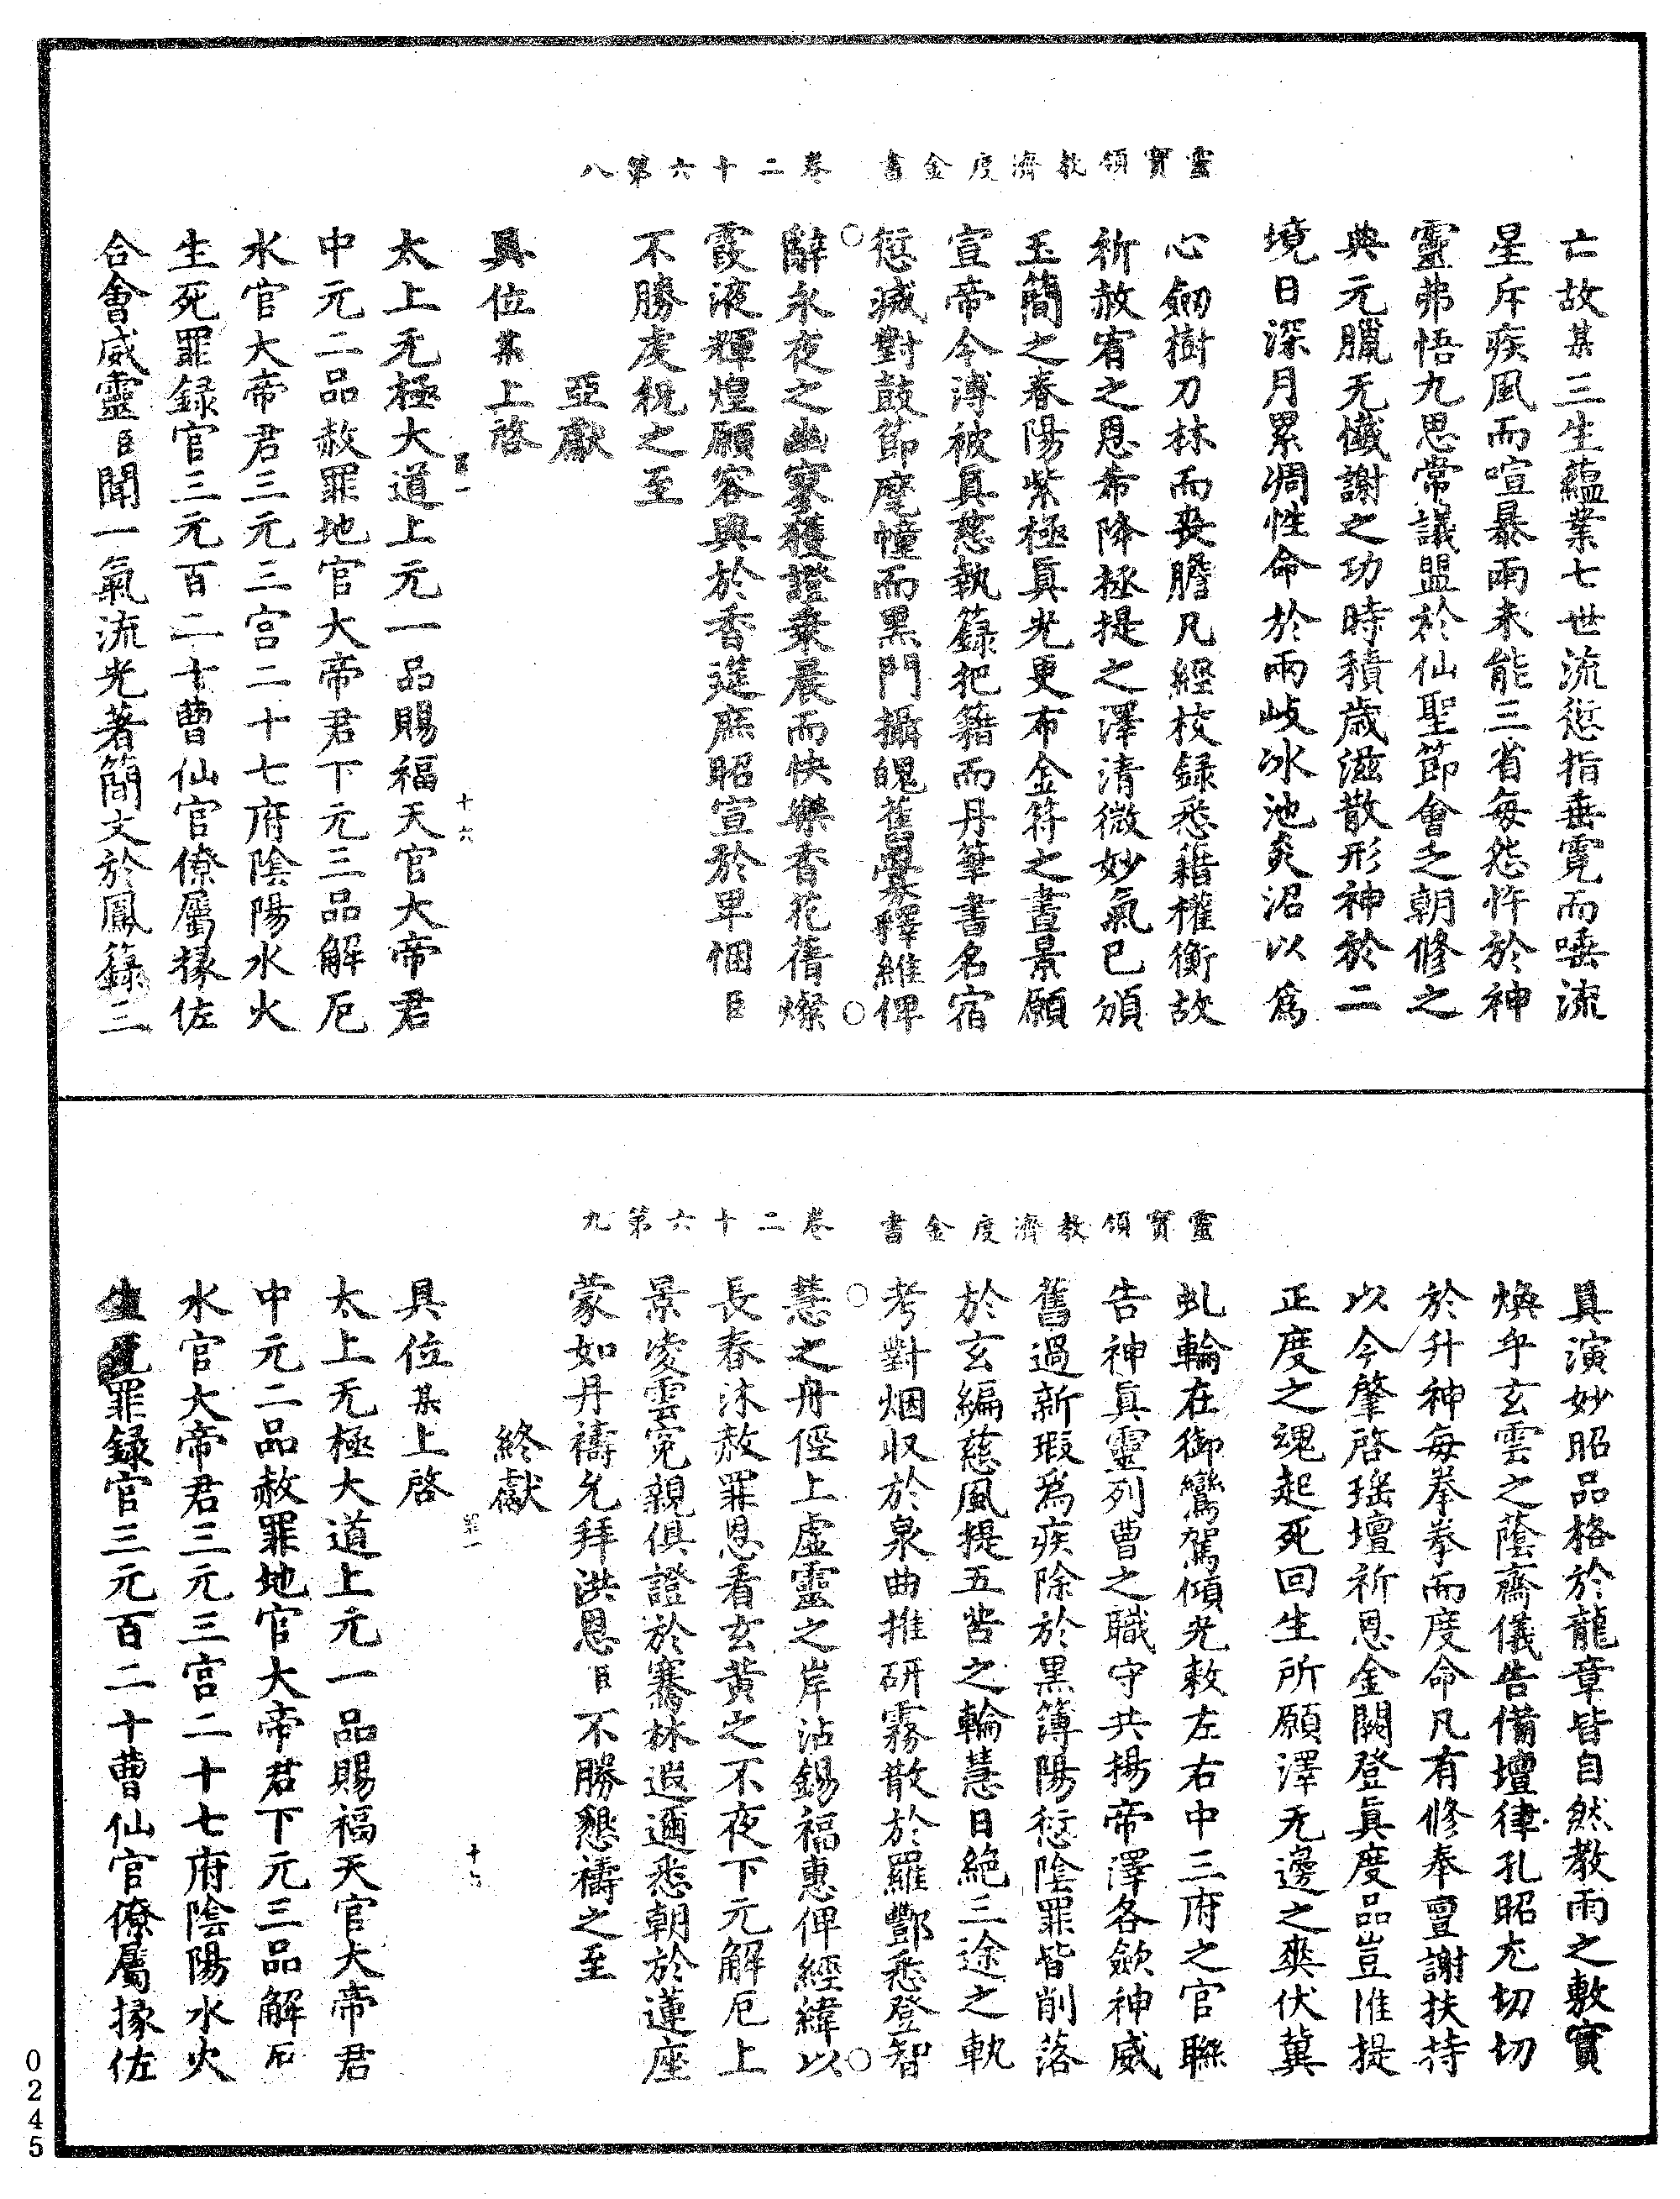 靈寶領教濟度金書　卷二十六第八
亡故某三生蘊業七世流愆指垂霓而唾流
星斥疾風而喧暴雨未能三省每怨忤於神
靈弗悟九思常議盟於仙聖節會之朝修之
典元臘无懺謝之功時積歲滋散形神於二
境日深月累凋性命於兩岐冰池炎沼以爲
心劒樹刀林而喪膽凡經校錄悉藉權衡故
祈赦宥之恩希降拯提之澤清微妙氣已頒
玉簡之春陽紫極眞光更布金符之晝景願
宣帝令溥被眞慈執籙把籍而丹筆書名宿
愆滅對鼓節麾幢而黑門攝魄舊釁釋維俾
辭永夜之幽寥獲證乗晨而快樂香花蒨燦
霞液輝煌願容與於香筵庶昭宣於卑悃臣
不勝虔祝之至
亞獻
具位某上啓
罪一　十六
太上无極大道上元一品賜福天官大帝君
中元二品赦罪地官大帝君下元三品解厄
水官大帝君三元三宮二十七府陰陽水火
生死罪録官三元百二十曹仙官僚屬掾佐
合會威靈臣聞一氣流光著簡文於鳳籙三
靈寶領教濟度金書　卷二十六第九
具演妙昭品格於龍章皆自然教雨之敷實
煥乎玄雲之蔭齋儀告備壇律孔昭尤切切
於升神每拳拳而度命凡有修奉亶謝扶持
以今肇啓瑶壇祈恩金闕登眞度品豈惟提
正度之魂起死回生所願澤无邊之爽伏冀
虬輪在御鸞駕傾光敕左右中三府之官聯
告神眞靈列曹之職守共揚帝澤各斂神威
舊過新瑕爲疾除於黑簿陽愆陰罪皆削落
於玄編慈風提五苦之輪慧日絶三途之執
考對烟収於泉曲推研霧散於羅酆悉登智
慧之舟徑上虛靈之岸沾錫福惠俾經緯以
長春沐赦罪恩看玄黃之不夜下元解厄上
景凌雲寃親俱證於騫林遐邇悉朝於蓮座
蒙如丹禱允拜洪恩臣不勝懇禱之至
終獻
具位某上啓
罪一　十七
太上无極大道上元一品賜福天官大帝君
中元二品赦罪地官大帝君下元三品解厄
水官大帝君三元三宮二十七府陰陽水火
生死罪録官三元百二十曹仙官僚屬掾佐
0245